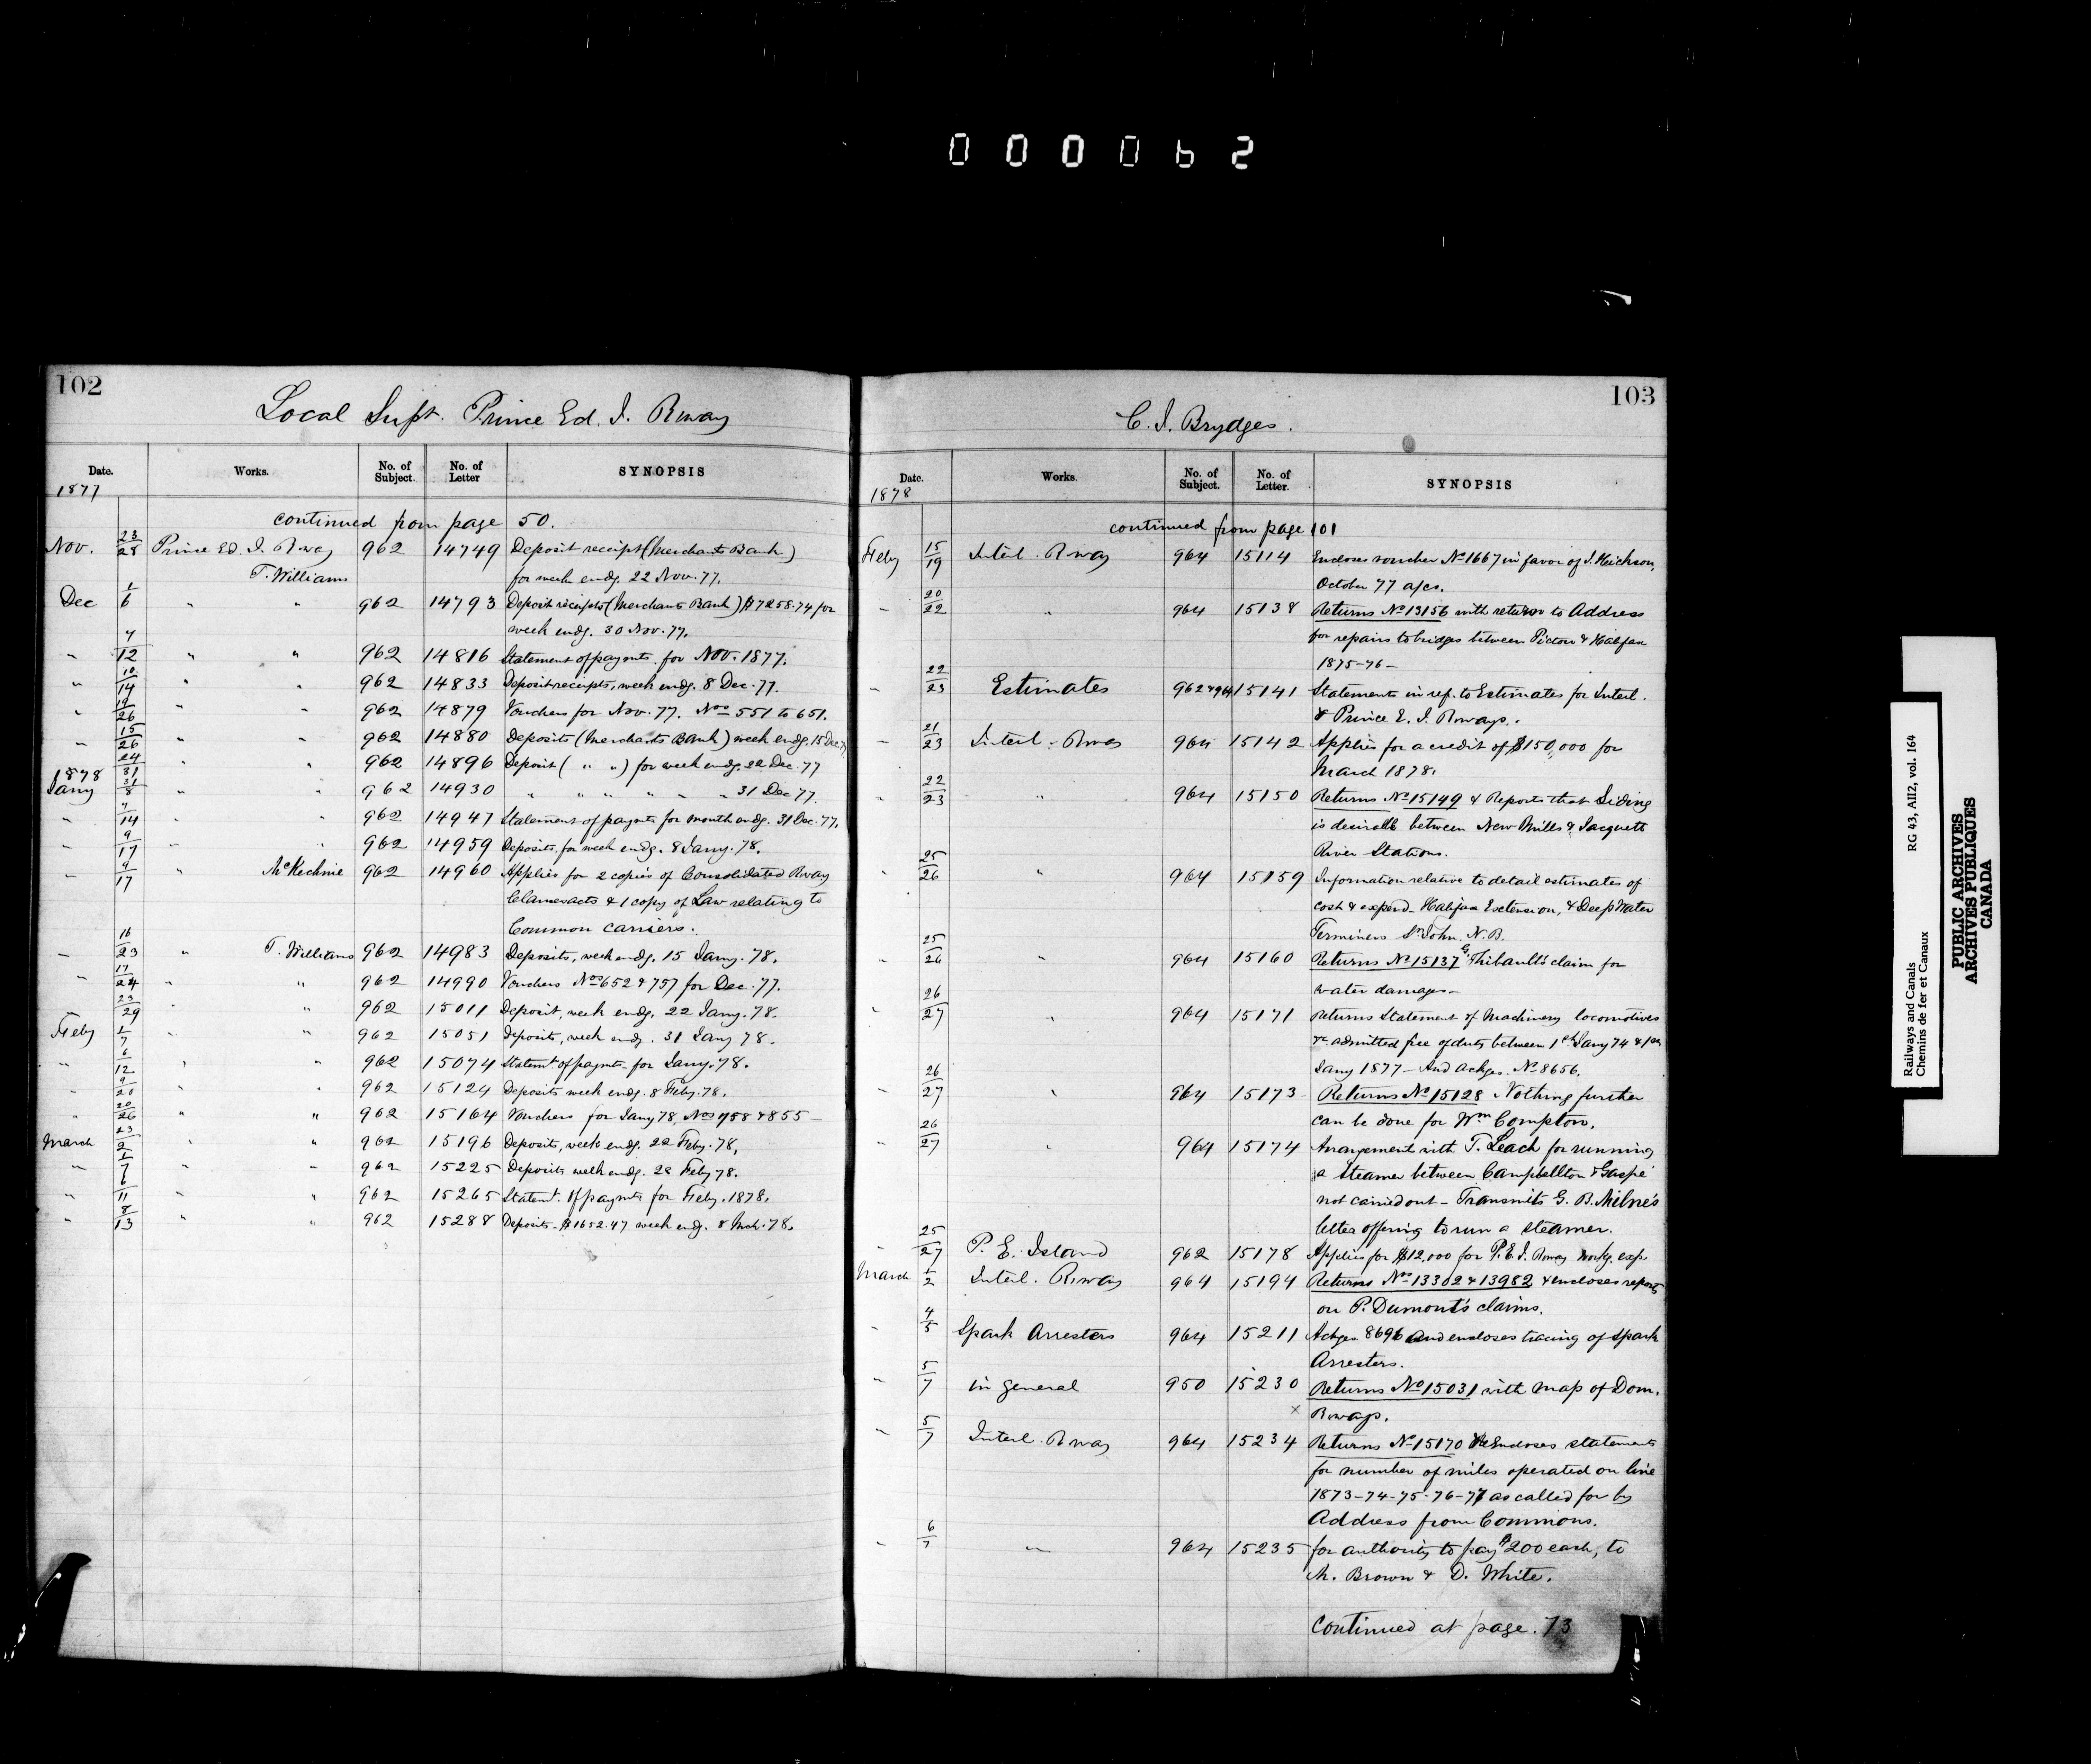 000062
102
Local Supt. Prince Ed. I. Rway
Date. Works. No. of Subject. No. of Letter SYNOPSIS
1877
continued from page 50.
Nov. 23/28 Prince Ed. I. Rway 962 14749 Deposit receipt (Merchants Bank)
T. Williams for week endg. 22 Nov. 77.
Dec 1/6 " " 962 14793 Deposit receipts (Merchants Bank) $7258.74 for
week endg. 30 Nov. 77.
" 7/12 " " 962 14816 Statement of paymts. for Nov. 1877.
" 10/14 " " 962 14833 Deposit receipts, week endg. 8 Dec. 77.
" 19/26 " " 962 14879 Vouchers for Nov. 77. Nos 551 to 651.
" 15/26 " " 962 14880 Deposits (Merchants Bank) week endg. 15 Dec.
24/31 " " 962 14896 Deposit ( " " ) for week endg. 22 Dec. 77
1878
Jany 31/8 " " 962 14930 " " " " " " 31 Dec 77.
" 7/14 " " 962 14947 Statement of paymts for month endg. 31 Dec. 77.
" 9/17 " " 962 14959 Deposits, for week endg. 8 Jany. 78.
" 9/17 " McKechnie 962 14960 Applies for 2 copies of Consolidated Rway
Clauses acts & 1 copy of Law relating to
Common carriers.
" 16/23 " T. Williams 962 14983 Deposits, week endg. 15 Jany. 78.
" 17/24 " " 962 14990 Vouchers Nos 652 & 757 for Dec. 77.
23/29 " 962 15011 Deposit, week endg. 22 Jany. 78.
Feby 1/7 " " 962 15051 Deposits, week endg. 31 Jany 78.
" 6/12 " " 962 15074 Statemt. of paymts for Jany. 78.
" 9/20 " " 962 15124 Deposits week endg. 8 Feby. 78.
" 20/26 " " 962 15164 Vouchers for Jany 78, Nos 758 & 855 —
March 23/2 " " 962 15196 Deposits, week endg. 22 Feby. 78,
" 1/7 " " 962 15225 Deposits week endg. 28 Feby 78.
" 6/11 " " 962 15265 Statemt. of paymts for Feby. 1878.
" 8/13 " " 962 15288 Deposits - $1652.47 week endg. 8 Mch. 78.
103
C. J. Brydges.
Date. Works. No. of Subject. No. of Letter. SYNOPSIS
1878
continued from page 101
Feby 15/19 Intcl. Rway 964 15114 Encloses voucher No 1667 in favor of J.
October 77 a/cs.
" 20/22 " 964 15138 Returns No 13156 with return to Address
for repairs to bridges between Pictou & Halifax
1875-76 -
" 22/23 Estimates 962 & 964 15141 Statements in ref. to Estimates for Intcl.
& Prince E. I. Rways.
" 21/23 Intcl. Rway 964 15142 Applies for a credit of $150,000 for
March 1878.
" 22/23 " 964 15150 Returns No 15149 & Reports that Siding
is desirable between New Mills & Jacquett
River Stations.
" 25/26 " 964 15159 Information relative to detail estimates of
cost & expend - Halifax Extension, & Deep Water
Terminus St John. N.B.
" 25/26 " 964 15160 Returns No 15137 G. Thibault's claim for
water damages -
" 26/27 " 964 15171 Returns Statement of Machinery locomotives
&c admitted free of duty between 1st Jany 74 & 1st
Jany 1877 - And ackges. No 8656.
" 26/27 " 964 15173 Returns No 15128 Nothing further
can be done for Wm Compton.
" 26/27 " 964 15174 Arrangement with T. Leach for running
a Steamer between Campbellton & Gaspé
not carried out - Transmits G. B. Milne's
letter offering to run a steamer.
" 25/27 P. E. Island 962 15178 Applies for $12,000 for P.E.I. Rway workg. exp.
March 1/2 Intcl. Rway 964 15194 Returns Nos 13302 & 13982 & encloses reports
on P. Dumont's claims.
" 4/5 Spark Arresters 964 15211 Ackges. 8696 and encloses tracing of spark
Arresters.
" 5/7 in general 950 15230 Returns No 15031 with map of Dom.
x Rways.
" 5/7 Intcl. Rway 964 15234 Returns No 15170 Encloses statements
for number of miles operated on line
1873-74-75-76-77 as called for by
Address from Commons.
" 6/7 " 964 15235 for authority to pay $200 each, to
M. Brown & D. White.
Continued at page. 73
Railways and Canals RG 43, AII2, vol. 164
Chemins de fer et Canaux
PUBLIC ARCHIVES
ARCHIVES PUBLIQUES
CANADA